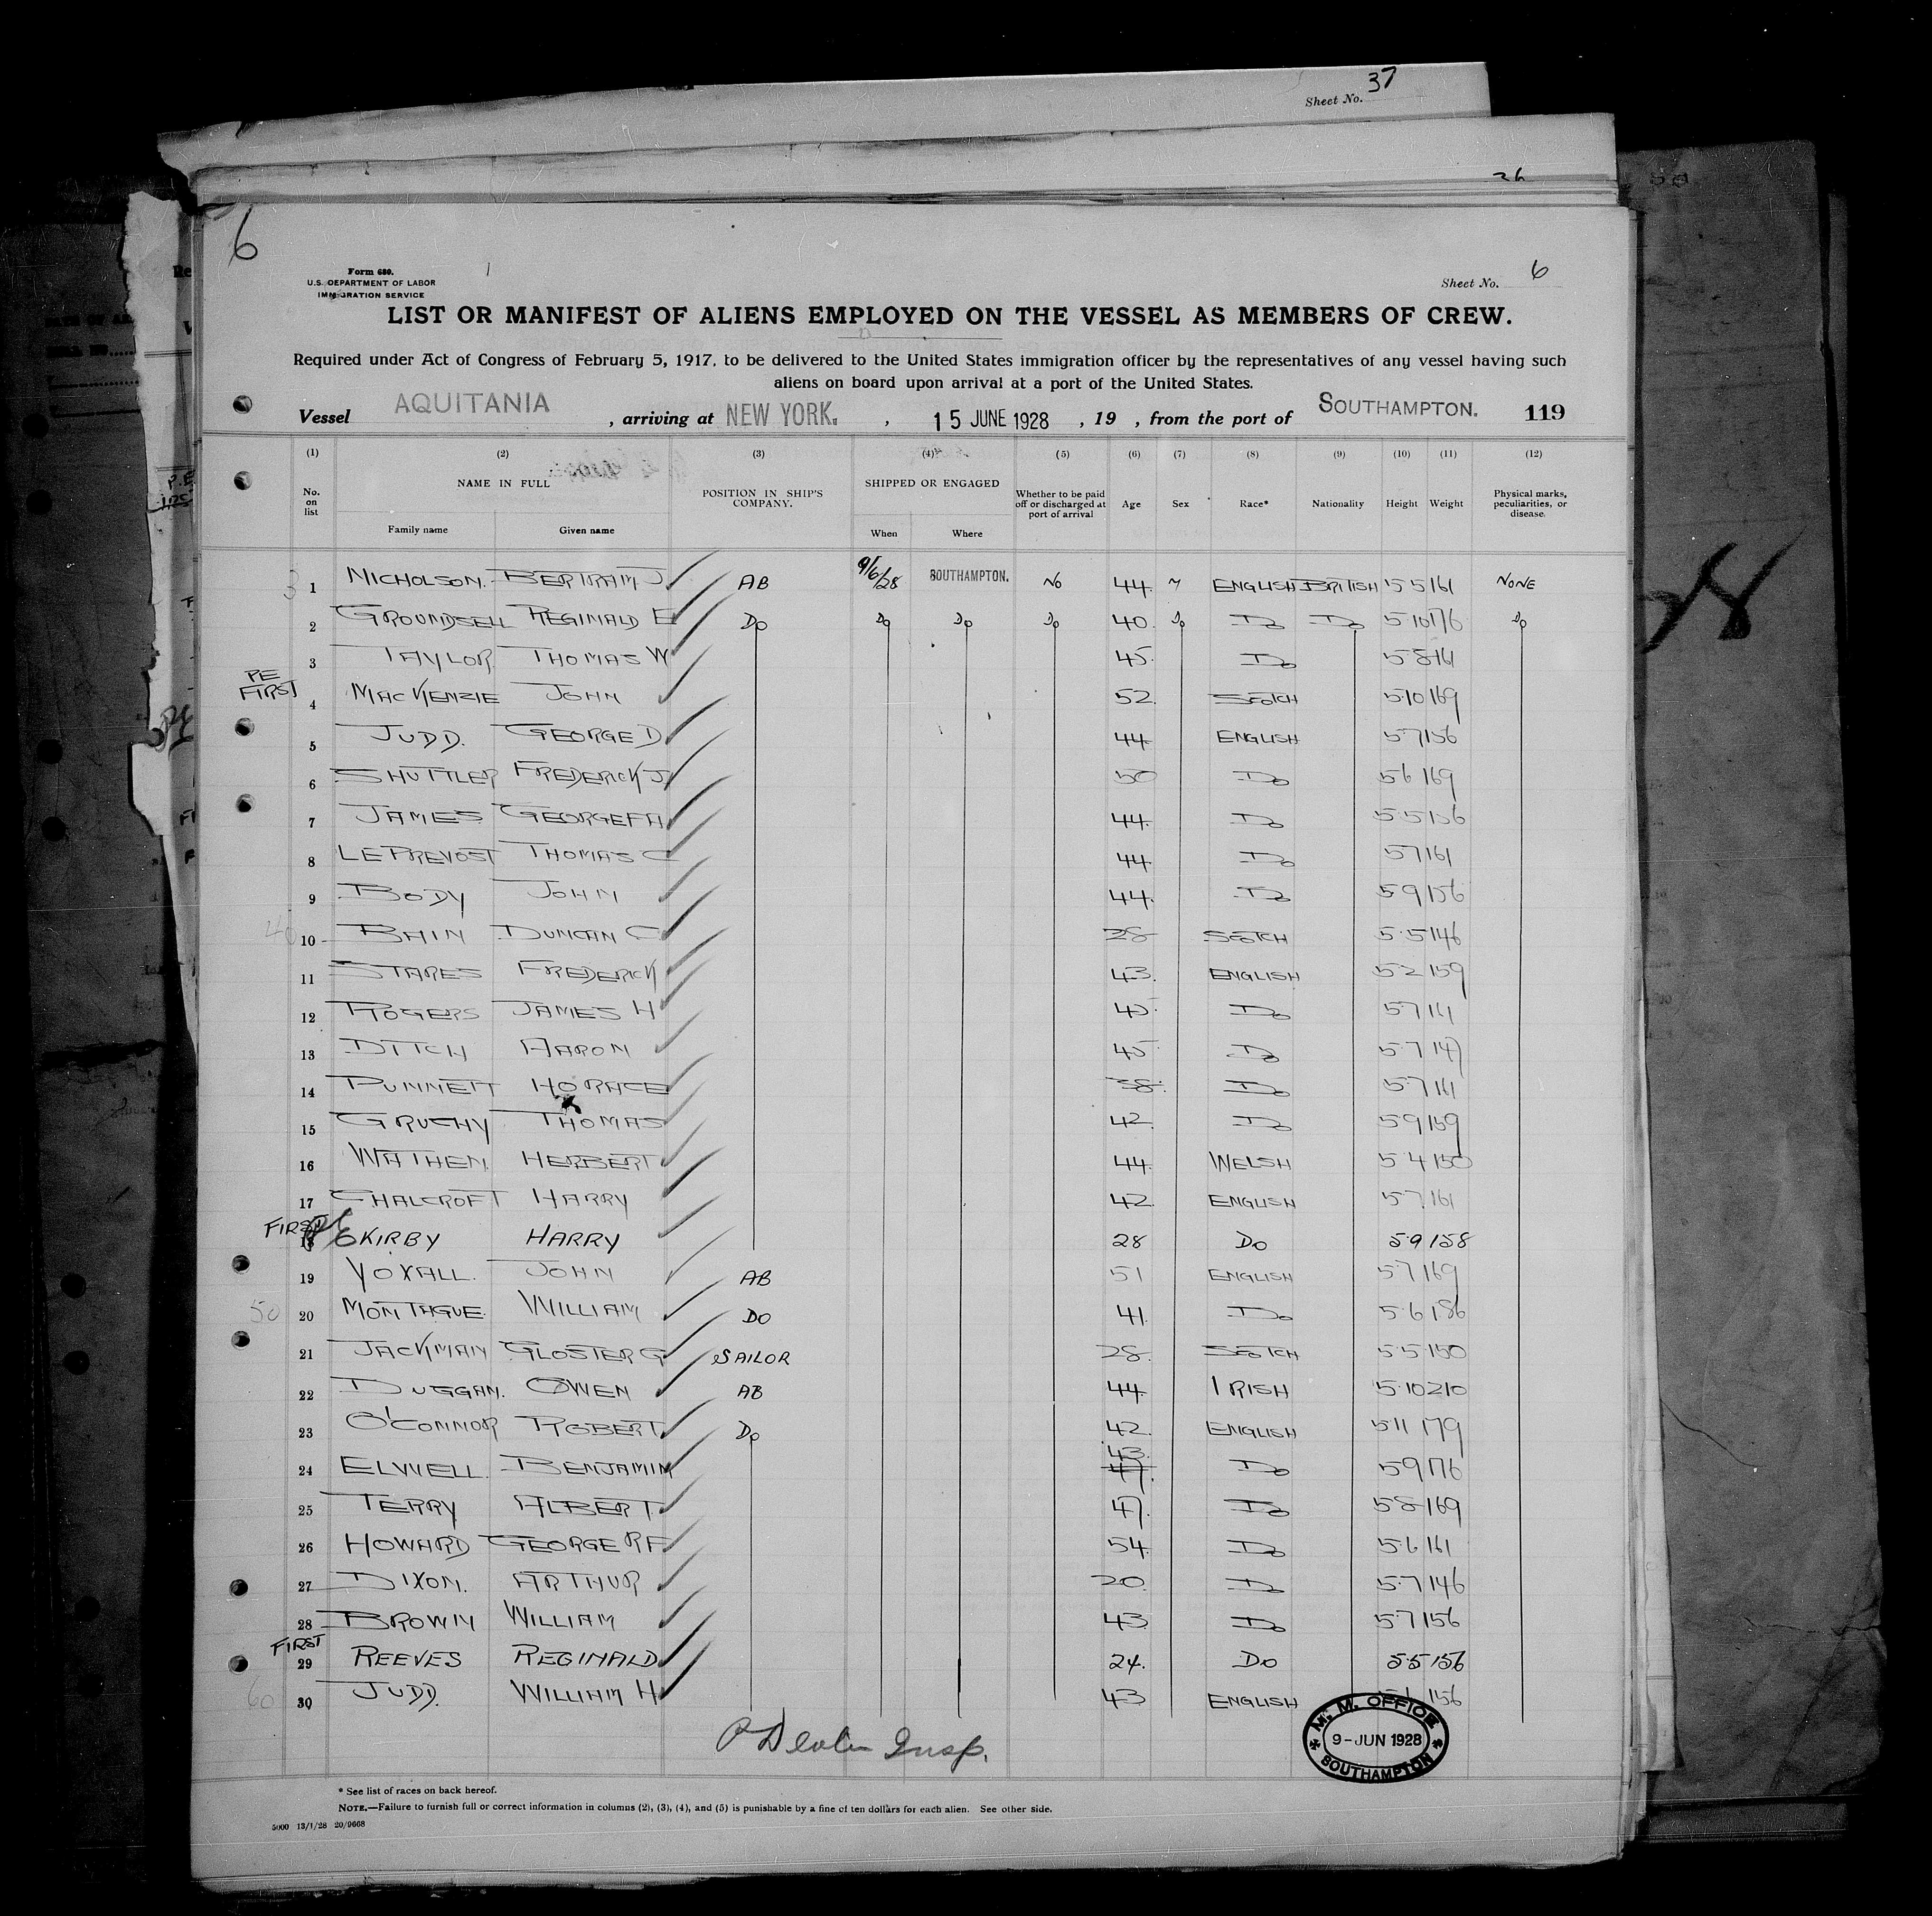 Sheet No. 37
26
6
Form 680.
U.S. DEPARTMENT OF LABOR
IMMIGRATION SERVICE
Sheet No. 6
LIST OR MANIFEST OF ALIENS EMPLOYED ON THE VESSEL AS MEMBERS OF CREW.
Required under Act of Congress of February 5, 1917, to be delivered to the United States immigration officer by the representatives of any vessel having such
aliens on board upon arrival at a port of the United States.
Vessel AQUITANIA , arriving at NEW YORK. , 15 JUNE 1928 , 19 , from the port of SOUTHAMPTON. 119
(1) (2) (3) (4) (5) (6) (7) (8) (9) (10) (11) (12)
No. on list NAME IN FULL Family name Given name POSITION IN SHIP'S COMPANY. SHIPPED OR ENGAGED When Where Whether to be paid off or discharged at port of arrival Age Sex Race* Nationality Height Weight Physical marks, peculiarities, or disease.
1 NICHOLSON. BERTRAM J AB 9/6/28 SOUTHAMPTON. NO 44. M ENGLISH BRITISH 5 5 161 NONE
2 GROUNDSELL REGINALD E Do Do Do Do 40. Do Do Do 5 10 176 Do
3 TAYLOR THOMAS W 45. Do 5 8 161
PE FIRST 4 MACKENZIE JOHN 52. SCOTCH 5 10 169
5 JUDD. GEORGE D 44. ENGLISH 5 7 156
6 SHUTTLER FREDERICK J 50 Do 5 6 169
7 JAMES GEORGE F H 44. Do 5 5 156
8 LE PREVOST THOMAS C 44. Do 5 7 161
9 BODY JOHN 44. Do 5 9 156
40 10 BAIN DUNCAN C 28 SCOTCH 5 5 146
11 STARES FREDERICK 43. ENGLISH 5 2 159
12 ROGERS JAMES H 45. Do 5 7 161
13 DITCH AARON 45 Do 5 7 147
14 DUNNETT HORACE 38. Do 5 7 161
15 GRUCHY THOMAS 42. Do 5 9 159
16 WATHEN HERBERT 44. WELSH 5 4 150
17 CHALCROFT HARRY 42. ENGLISH 5 7 161
FIRST 18 KIRBY HARRY 28 DO 5 9 158
19 YOXALL. JOHN AB 51 ENGLISH 5 7 169
50 20 MONTAGUE. WILLIAM DO 41. Do 5 6 186
21 JACKMAN GLOSTER G SAILOR 28. SCOTCH 5 5 150
22 DUGGAN. OWEN AB 44 IRISH 5 10 210
23 O'CONNOR ROBERT. Do 42. ENGLISH 5 11 179
24 ELWELL. BENJAMIN 43. 47. Do 5 9 176
25 TERRY ALBERT. 47. Do 5 8 169
26 HOWARD GEORGE R F 54 Do 5 6 161
27 DIXON. ARTHUR 20. Do 5 7 146
28 BROWN WILLIAM 43 Do 5 7 156
FIRST 29 REEVES REGINALD 24. DO 5 5 156
60 30 JUDD. WILLIAM H 43 ENGLISH 156
Insp.
M. M. OFFICE
9-JUN 1928
SOUTHAMPTON
* See list of races on back hereof.
NOTE.—Failure to furnish full or correct information in columns (2), (3), (4), and (5) is punishable by a fine of ten dollars for each alien. See other side.
5000 13/1/28 20/9668